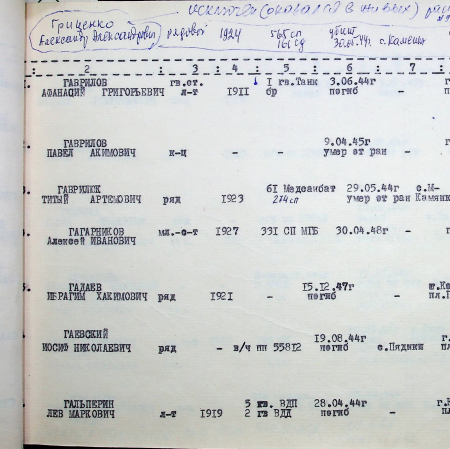 исключен (оказался в живых)
Гриценко
Александр Александрович рядовой 1924 565 сп 161 сд убит 30.01.44г. с. Камені
: 2 : 3 : 4 : 5 : 6 : 7 :
ГАВРИЛОВ гв.ст. I гв.Танк 3.06.44г
АФАНАСИЙ ГРИГОРЬЕВИЧ л-т 1911 бр погиб -
ГАВРИЛОВ 9.04.45г
ПАВЕЛ АКИМОВИЧ к-ц - - умер от ран -
ГАВРИЛЮК 61 Медсанбат 29.05.44г с.М-
ТИТЫЙ АРТЕМОВИЧ ряд 1923 274 сп умер от ран Камянк
ГАГАРНИКОВ мл.-с-т 1927 331 СП МГБ 30.04.48г -
Алексей ИВАНОВИЧ
ГАДАЕВ 15.12.47г
ИБРАГИМ ХАКИМОВИЧ ряд 1921 - погиб - пл.
ГАЕВСКИЙ 19.08.44г
ИОСИФ НИКОЛАЕВИЧ ряд - в/ч пп 55812 погиб с.Пядыки
ГАЛЬПЕРИН 5 гв. ВДП 28.04.44г
ЛЕВ МАРКОВИЧ л-т 1919 2 гв ВДД погиб -